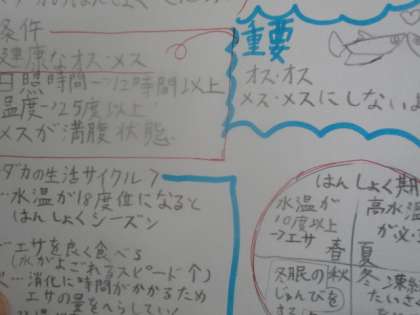 条件
健康なオス・メス
日照時間→12時間以上
温度→25度以上
メスが満腹状態
重要
オス・オス
メス・メスにしない
ダカの生活サイクル
水温が18度位になると
はんしょくシーズン
エサを良く食べる
(水がよごれるスピード
消化に時間がかかるため
エサの量をへらしていく
はんしょく期
水温が
10度以上
→エサ
春
高水温
が必
夏
冬眠の
じゅんびを
秋
冬